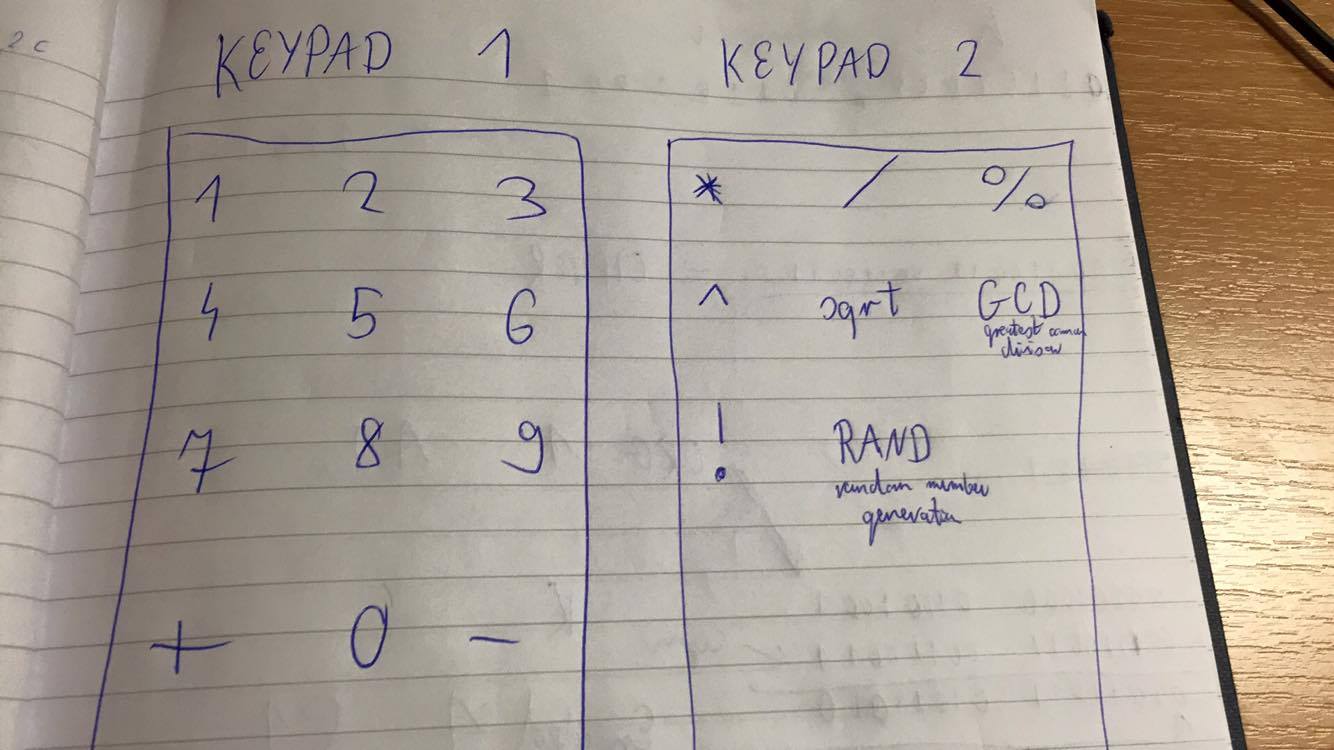 2 c
KEYPAD 1
1 2 3
4 5 6
7 8 9
+ 0 -
KEYPAD 2
* / %
^ sqrt GCD
greatest
! RAND
random number
generation